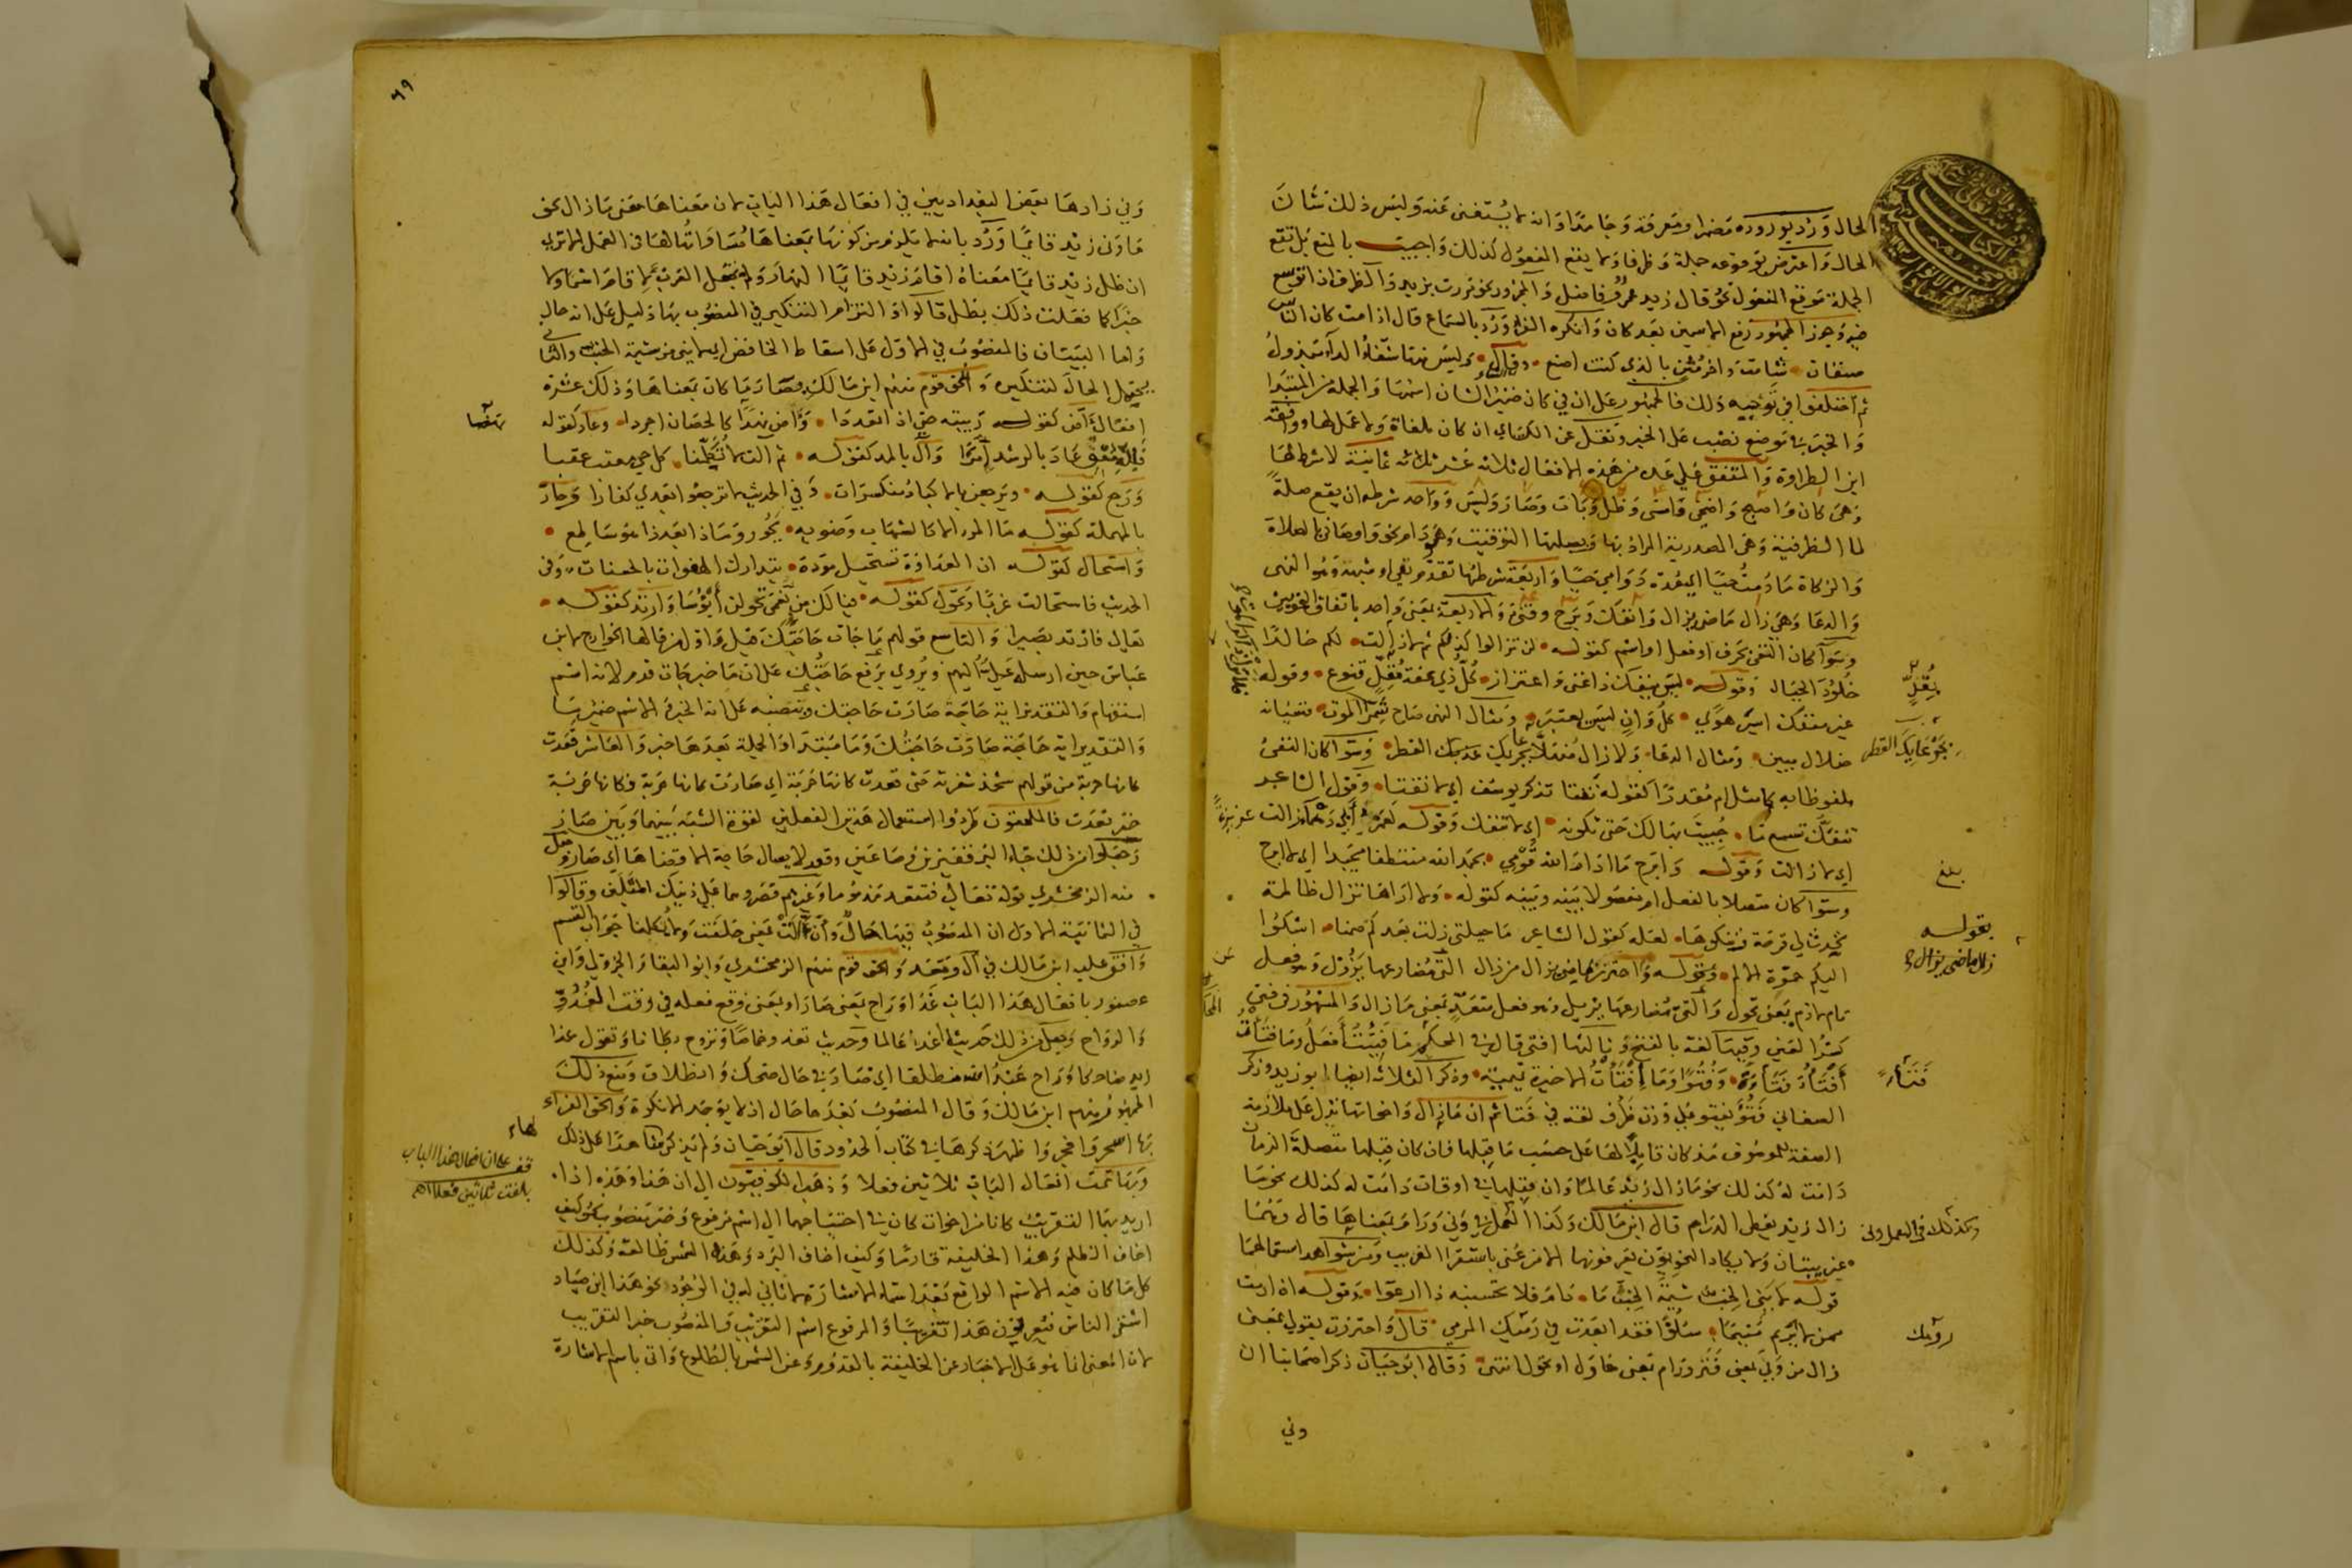 الحال ورد بوروده مضمرا ومعرفة وجامدا وانه لا يستغنى عنه وليس ذلك شان
الحال واعترض بوقوعه جملة وظرفا ولا يقع المفعول كذلك واجيب بالمنع بل تقع
الجملة موقع المفعول نحو قال زيد عمرو فاضل والمجرور نحو مررت بزيد والظرف اذا توسع
فيه وجوز الجمهور رفع الاسمين بعد كان وانكره الفراء ورد بالسماع قال اذا مت كان الناس
صنفان شامت وآخر مثن بالذي كنت اصنع وقال وليس منها شفاء الداء مبذول
ثم اختلفوا في توجيه ذلك فالجمهور على ان في كان ضمير الشان اسمها والجملة من المبتدا
والخبر في موضع نصب على الخبر ونقل عن الكسائي ان كان ملغاة ولا عمل لها ووافقه
ابن الطراوة والمتفق على عده من هذه الافعال ثلاثة عشر ثمانية لا شرط لها
وهي كان واصبح واضحى وامسى وظل وبات وصار وليس وواحد شرطه ان يقع صلة
لما الظرفية وهي المصدرية المراد بها وبصلتها التوقيت وهو دام نحو واوصاني بالصلاة
والزكاة ما دمت حيا اي مدة دوامي حيا واربعة شرطها تقدم نفي او شبهه وهو النهي
والدعا وهي زال ماضي يزال وانفك وبرح وفتئ والاربعة بمعنى واحد باتفاق النحويين
وسوآ كان النفي بحرف او فعل او اسم كقوله لن تزالوا كذلكم ثم لا زلت لكم خالدا
خلود الجبال وقوله ليس ينفك ذا غنى واعتزاز كل ذي عفة مقل قنوع وقوله
غير منفك اسير هوى كل وان ليس يعتبر ومثال النهي صاح شمر الموت فنسيانه
ضلال مبين ومثال الدعا ولا زال منهلا بجرعائك القطر وسوا كان النفي
ملفوظا به كما مثل ام مقدرا كقوله تفتا تذكر يوسف اي لا تفتا وقول الشاعر
تنفك تسمع ما حييت بهالك حتى تكونه اي لا تنفك وقوله لعمر ابي دهماء زالت عزيزة
اي لا زالت وقوله وابرح ما ادام الله قومي بحمد الله منتطقا مجيدا اي لا ابرح
وسوآ كان متصلا بالفعل ام مفصولا بينه وبينه كقوله ولا اراها تزال ظالمة
تحدث لي قرحة وتنكوها لعله كقول الشاعر ما خيلتني زلت بعدكم ضمنا اشكو
اليكم حموة الالم وبقوله واحترز بماضي يزال من زال التي مضارعها يزول وهو فعل
تام لازم بمعنى تحول والتي مضارعها يزيل وهو فعل متعد بمعنى ماز والمشهور في فتئ
كسر العين وفيها لغة بالفتح وثالثها افتى قال في المحكم ما فتئت افعل وما فتأت
افتأ وفتوا وما افتأت الاخيرة تميمية وذكر الثلاثة ايضا ابو زيد وذكر
الصغاني فتؤ يفتؤ على وزن ظرف لغة في فتا ثم ان ما زال واخواتها تدل على ملازمة
الصفة للموصوف مذ كان قابلا لها على حسب ما قبلها فان كان قبلها متصلة الزمان
دامت له كذلك نحو ما زال زيد عالما وان قبلها في اوقات دامت له كذلك نحو ما
زال زيد يعطي الدراهم قال ابن مالك وكذا العمل في ونى ورام بمعناها قال وهما
غريبتان ولا يكاد النحويون يعرفونهما الا من عنى باستقرا الغريب ومن شواهد استعمالهما
قوله لا يني الخب شيمة الخب ما دام فلا تحسبنه ذا ارعوا وقوله اذا رمت
ممن لا يريم متيما سلوا فقد ابعدت في رومك المرمي قال واحترزت بقولي بمعنى
زال من ونى بمعنى فتر ورام بمعنى حاول او تحول انتهى وقال ابو حيان ذكر اصحابنا ان
وني
مقل
بجرعايك القطر
بلغ
بقوله
زال ماضي يزال
وكذلك في العمل ونى
رومك
٦٩
وني زادها بعض البغداديين في افعال هذا الباب لان معناها معنى ما زال نحو
ما ونى زيد قائما ورد بانه لا يلزم من كونها بمعناها مساواتها لها في العمل الا ترى
ان ظل زيد قائما معناه اقام زيد قائما النهار ولم تجعل العرب لاقام اسما ولا
خبرا كما فعلت ذلك بظل قالوا والتزام التنكير في المنصوب بها دليل على انه حال
واما البيتان فالمنصوب في الاول على اسقاط الخافض اي لا يني من شيمة الخب والثاني
يحتمل الحال لتنكيره والحق قوم منهم ابن مالك بصار ما كان بمعناها وذلك عشرة
افعال آض كقوله ربيته حتى اذا تمعددا وآض نهدا كالحصان اجردا وعاد كقوله
عاد بالرشد آمرا وآل بالمد كقوله ثم آلت لا تكلمنا كل حي معقب عقبا
ورجع كقوله ويرجعن بالاكباد منكسرات وفي الحديث لا ترجعوا بعدي كفارا وحار
بالمهملة كقوله ما المرء الا كالشهاب وضوئه يحور رمادا بعد اذ هو ساطع
واستحال كقوله ان العداوة تستحيل مودة بتدارك الهفوات بالحسنات وفي
الحديث فاستحالت غربا وتحول كقوله فيا لك من نعمى تحولن ابؤسا وارتد كقوله
تعالى فارتد بصيرا والتاسع قولهم ما جات حاجتك قيل واول من قالها الخوارج لابن
عباس حين ارسله علي اليهم ويروى برفع حاجتك على ان ما خبر جات قدم لانه اسم
استفهام والتقدير اية حاجة صارت حاجتك وبنصبه على انه الخبر والاسم ضمير ما
والتقدير اية حاجة صارت حاجتك وما مبتدا والجملة بعدها خبر والعاشر قعدت
كانها حربة من قولهم شحذ شفرته حتى قعدت كانها حربة اي صارت كانها حربة فكانها حربة
خبر قعدت فالملحقون طردوا استعمال هذين الفعلين لقوة الشبه بينهما وبين صار
وجعلوا من ذلك جاء البر قفيزين وصاعين وقعد لا يسال حاجة الا قضاها اي صار وجعل
منه الزمخشري قوله تعالى فتقعد مذموما وغيرهم قصروهما على ذينك المثلين وقالوا
في الثانية الاول ان المنصوب فيها حال وان آلت بمعنى حلفت ولا تكلمنا جواب القسم
ووافق عليه ابن مالك في آل وقعد والحق قوم منهم الزمخشري وابو البقا والجزولي وابن
عصفور بافعال هذا الباب غدا وراح بمعنى صار او بمعنى وقع فعله في وقت الغدو
والرواح وجعل من ذلك حديث اغد عالما وحديث تغدو خماصا وتروح بطانا وتقول غدا
زيد ضاحكا وراح عبد الله منطلقا اي صار في حال ضحك وانطلاق ومنع ذلك
الجمهور منهم ابن مالك وقال المنصوب بعدها حال اذ لا يوجد الا نكرة والحق الفراء
بها اسحر وافجر واظهر ذكرها في كتاب الحدود قال ابو حيان ولم يذكر لها شاهدا على ذلك
وبها تمت افعال الباب ثلاثين فعلا وذهب الكوفيون الى ان هذا وهذه اذا
اريد بهما التقريب كانا من اخوات كان في احتياجهما الى اسم مرفوع وخبر منصوب نحو كيف
اخاف الظلم وهذا الخليفة قادما وكيف اخاف البرد وهذه الشمس طالعة وكذلك
كل ما كان فيه الاسم الواقع بعد اسماء الاشارة لا ثاني له في الوجود نحو هذا ابن صياد
اشقى الناس فيعربون هذا تقريبا والمرفوع اسم التقريب والمنصوب خبر التقريب
لان المعنى انما هو على الاخبار عن الخليفة بالقدوم وعن الشمس بالطلوع واتى باسم الاشارة
قف على ان افعال هذا الباب
بلغت ثلاثين فعلا اهـ